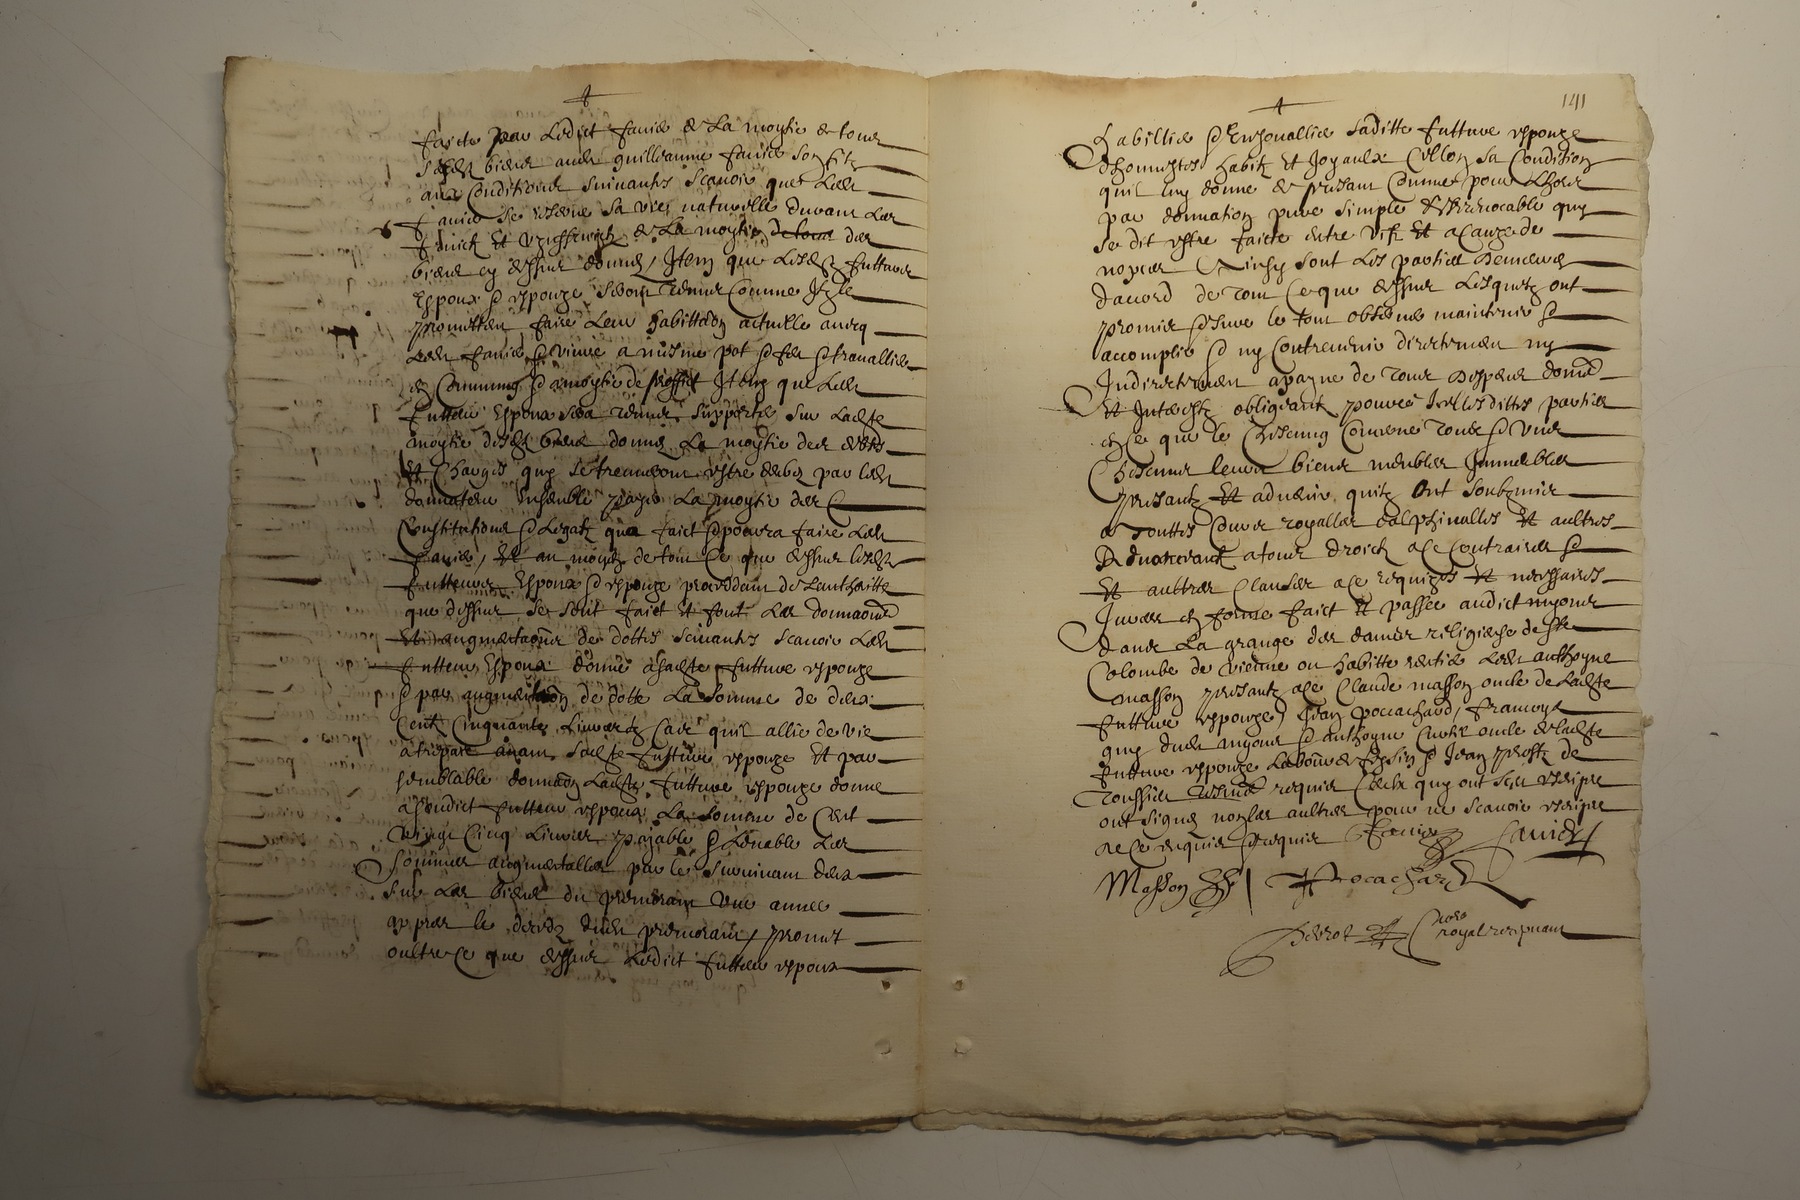 faicte par Ledict fanie de La moytie de tous
ses biens audit guilleaume fanie son filz
aux Conditions suivantes scavoir que Led
fanie se reserve sa vie naturelle durant Les
fruictz Et de La moytie de tous des
biens cy dessus donnes / Item que Lesd futturs
Espoux & espouze seront tenus Comme Ilz
promettent faire Leur habittation actuelle avecq
Led fanie & vivre a mesme pot & feu & travallier
en Commung & a moytie de proffict Item que Led
futteur Espoux sera tenu supporter sur Ladte
moytie desd biens donnes La moytie des debtz
Et Charges quy se treuveront estre deubz par led
donnateur Ensemble payer La moytie des
Constitutions & Legatz que faict & pourra faire Led
fanie / Et au moyen de tout Ce que dessus lesd
futteurs Espoux & espouze procedant de Lauthoritte
que dessus se sont faict Et font Les donnaons
Et augmentaons de dottes suivantes scavoir Led
futteur Espoux donne a sadte futture espouze
& par augmentaon de dotte La somme de deux
Cent Cinquante Livres Cas quil allie de vie
a trepas avant sadte futture espouze Et par
semblable donnaon Ladte futture espouze donne
audict futteur espoux La somme de Cent
vingt Cinq Livres payable & Levable Les
sommes augmentalles par le survivant deux
sur Les biens du premorant une annee
appres le deces dud premorant / promet
oultre Ce que dessus Ledict futteur espoux
141
habillier & Enjoualliere saditte futture espouze
dhonnestes habitz Et Joyaulx Cellon sa Condition
quil luy donne de presant Comme pour Lhors
par donnation pure simple & Irrevocable quy
se dit estre faicte entre vifz Et a Cauze de
nopces Ainsy sont Les parties demeures
daccord de tout Ce que dessus Lesquelz ont
promis & Jure le tout observe maintenir &
accomplir & ny Contrevenir directement ny
Indirectement a payne de tous despens domes
Et Interestz obligeant pour ce Icelles dittes parties
en Ce que le Chascung Concerne tous & uns
Chascuns leurs biens meubles Immeubles
presantz Et advenir quilz Ont soubzmis
a touttes Cours royalles dalphinalles Et aultres
Renonceantz a tous droictz a Ce Contraires &
Et aultres Clauses a Ce requizes Et necessaires
Juxees en forme faict Et passee audict
dans La grange des dames religieuse de Ste
Colombe de vienne ou habitte rentie Led anthoyne
masson presantz a Ce Claude masson oncle de Ladte
futture espouze Jean pocachard / francoys
quy dud & anthoyne oncle de Ladte
futture espouze & Jean de
toussieu requis Ceulx quy ont sceu escripre
ont signes non les aultres pour ne scavoir escripre
de Ce enquis & requis fanie fanie
Masson pocachard
no.re
royal recepvant